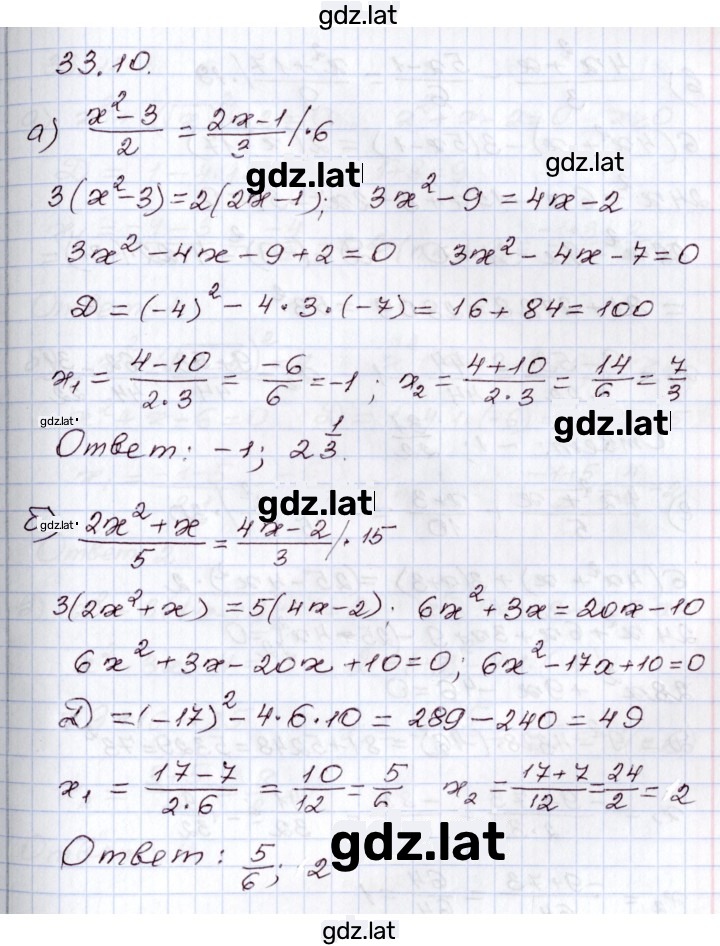 gdz.lat
33.10.
а) (x² - 3)/2 = (2x - 1)/3 /·6
gdz.lat
gdz.lat
3(x² - 3) = 2(2x - 1); 3x² - 9 = 4x - 2
3x² - 4x - 9 + 2 = 0 3x² - 4x - 7 = 0
D = (-4)² - 4·3·(-7) = 16 + 84 = 100
x₁ = (4 - 10)/(2·3) = (-6)/6 = -1; x₂ = (4 + 10)/(2·3) = 14/6 = 7/3
gdz.lat
gdz.lat
Ответ: -1; 2 1/3.
gdz.lat
gdz.lat
б) (2x² + x)/5 = (4x - 2)/3 /·15
3(2x² + x) = 5(4x - 2); 6x² + 3x = 20x - 10
6x² + 3x - 20x + 10 = 0; 6x² - 17x + 10 = 0
D = (-17)² - 4·6·10 = 289 - 240 = 49
x₁ = (17 - 7)/(2·6) = 10/12 = 5/6 x₂ = (17 + 7)/12 = 24/2 = 2
Ответ: 5/6; 2
gdz.lat
gdz.lat